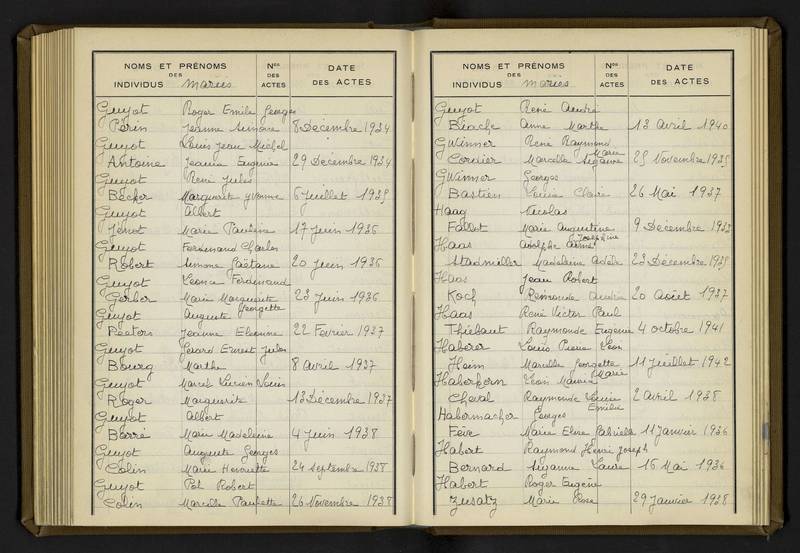 NOMS ET PRÉNOMS DES INDIVIDUS mariés Nos DES ACTES DATE DES ACTES
Guyot Roger Emile Georges
Périn Jeanne Simone 8 Décembre 1934
Guyot Louis Jean Michel
Antoine Jeanne Eugenie 29 Décembre 1934
Guyot René Jules
Becker Marguerite Yvonne 6 Juillet 1935
Guyot Albert
Jenot Marie Pauline 17 Juin 1936
Guyot Ferdinand Charles
Robert Simone Gaëtane 20 Juin 1936
Guyot Leonce Ferdinand
Gerber Marie Marguerite Georgette 23 Juin 1936
Guyot Auguste
Peeters Jeanne Eleonne 22 Février 1937
Guyot Gerard Ernest Jules
Bourg Marthe 8 Avril 1937
Guyot Lucien Louis
Roger Marguerite 13 Décembre 1937
Guyot Albert
Barré Marie Madeleine 4 Juin 1938
Guyot Auguste Georges
Colin Marie Henriette 24 Septembre 1938
Guyot Robert
Colin Marcelle Paulette 26 Novembre 1938
NOMS ET PRÉNOMS DES INDIVIDUS mariés Nos DES ACTES DATE DES ACTES
Guyot René André
Biache Anne Marthe 13 Avril 1940
Gwinner René Raymond
Cordier Marcelle Suzanne Marie 25 Novembre 1935
Gwinner Georges
Bastien Louise Claire 26 Mai 1937
Haag Nicolas
Fallot Marie Augustine 9 Décembre 1933
Haas Adolphe Josephine
Stadmiller Madeleine Adèle 23 Décembre 1935
Haas Jean Robert
Koch Remonde Andrée 20 Août 1937
Haas René Victor Paul
Thiébaut Raymonde Eugenie 4 Octobre 1941
Haberer Louis Pierre Léon
Heim Marcelle Georgette 11 Juillet 1942
Haberkorn Léon Maurice Marie
Cheval Raymonde Louise 2 Avril 1938
Habermacher Georges Emilie
Fève Marie Gabriele 11 Janvier 1936
Habert Raymond Henri Joseph
Bernard Suzanne Laure 16 Mai 1936
Habert Roger Eugène
Zusatz Marie Rose 29 Janvier 1938